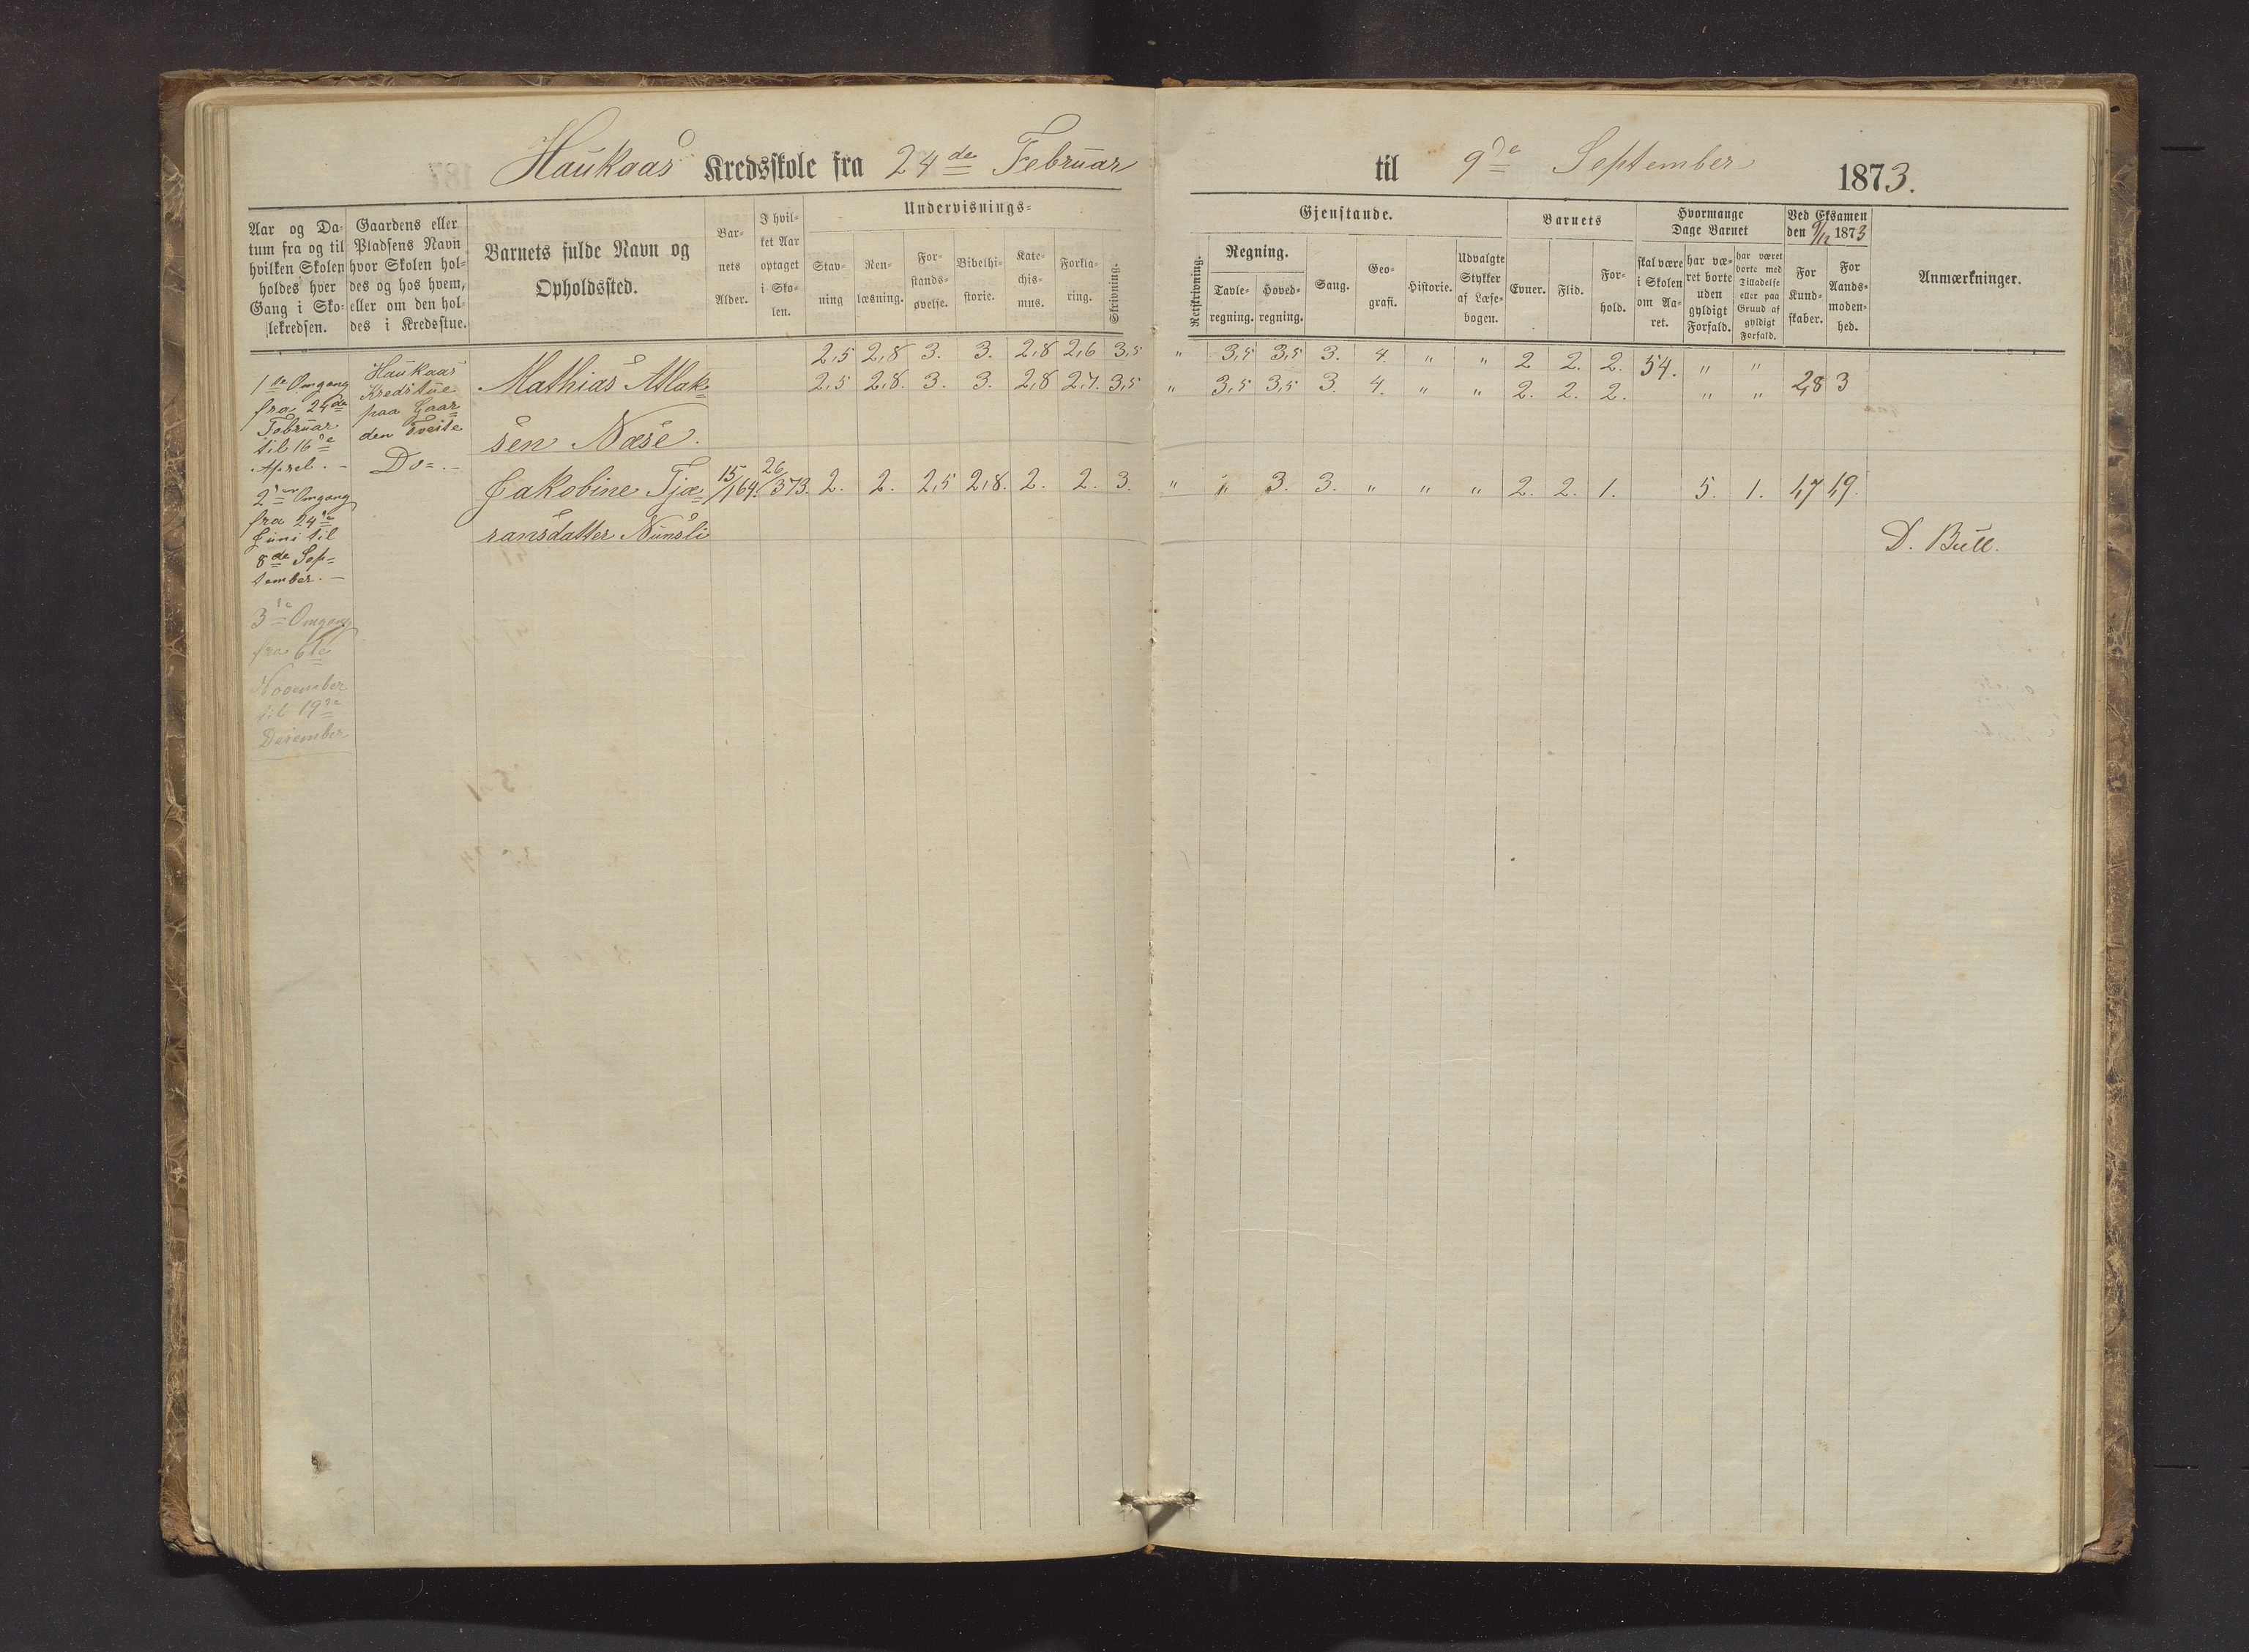 Haukaas Kredsskole fra 24de Februar til 9de September 1873.
Aar og Da- tum fra og til hvilken Skolen holdes hver Gang i Sko- lekredsen.
Gaardens eller Pladsens Navn hvor Skolen hol- des og hos hvem, eller om den hol- des i Kredsstue.
Barnets fulde Navn og Opholdssted.
Bar- nets Alder.
I hvil- ket Aar optaget i Sko- len.
Undervisnings-
Stav- ning
Ren- læsning.
For- stands- øvelse.
Bibelhi- storie.
Kate- chis- mus.
Forkla- ring.
Skrivning.
Gjenstande.
Retskrivning.
Regning.
Tavle- regning.
Hoved- regning.
Sang.
Geo- grafi.
Historie.
Udvalgte Stykker af Læse- bogen.
Barnets
Evner.
Flid.
For- hold.
Hvormange Dage Barnet
skal være i Skolen om Aa- ret.
har væ- ret borte uden gyldigt Forfald.
har været borte med Tilladelse eller paa Grund af gyldigt Forfald.
Ved Eksamen den 9/12 1873
For Kund- skaber.
For Aands- moden- hed.
Anmærkninger.
1ste Omgang
fra 24de
Februar
til 16de
April. -
2den Omgang
fra 24de
Juni til
8de Sep-
tember. -
3de Omgang
fra 6te
November
til 19de
Desember
Haukaas
Kredstue
paa Gaar
den Tveite
Do -. -
2,5 2,8 3. 3. 2,8 2,6 3,5 " 3,5 3,5 3. 4. " " 2 2. 2. 54. " "
Mathias Mak= 2,5 2,8. 3. 3. 2,8 2,7. 3,5 " 3,5 3,5 3. 4. " " 2. 2. 2. " " 2,8 3
sen Næse.
Jakobine Tjæ= 15/1 64. 26/3 73. 2. 2. 2,5 2,8. 2. 2. 3. " " 3. 3. " " " 2. 2. 1. 5. 1. 1,7 1,9.
ransdatter Nunsli
D. Bull.